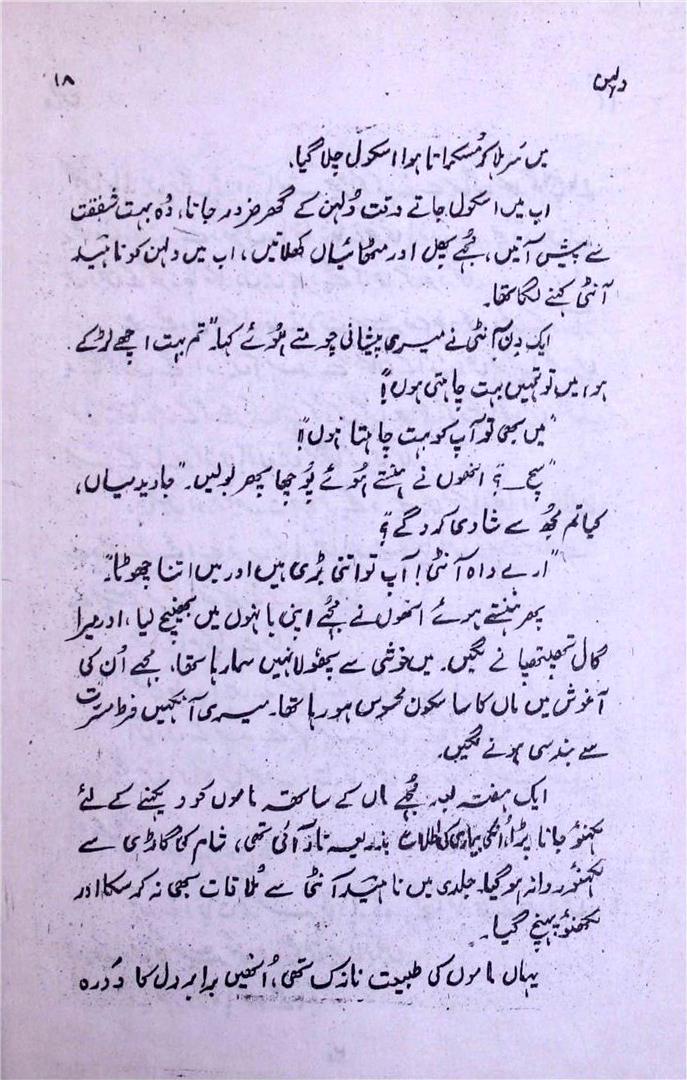 دلہن
۱۸
میں سر ہلا کر مُسکراتا ہوا اسکول چلا گیا۔
اب میں اسکول جاتے وقت دُلہن کے گھر ضرور جاتا، وُہ بہت شفقت
سے پیش آتیں، مُجھے پھل اور مٹھائیاں کھلاتیں، اب میں دلہن کو ناہید
آنٹی کہنے لگا تھا۔
ایک دِن آنٹی نے میری پیشانی چومتے ہُوئے کہا۔ "تم بہت اچھے لڑکے
ہو، میں تو تمہیں بہت چاہتی ہوں"!
"میں بھی تو آپ کو بہت چاہتا ہُوں"!
"سچ ــ؟ انھوں نے ہنستے ہُوئے پُوچھا پھر بولیں۔ "جاوید میاں،
کیا تم مجھُ سے شادی کرو گے؟"
"ارے واہ آنٹی! آپ تو اتنی بڑی ہیں اور میں اتنا چھوٹا"۔
پھر ہنستے ہوئے انھوں نے مُجھے اپنی بانہوں میں بھینچ لیا، اور میرا
گال تھپتھپانے لگیں۔ میں خوشی سے پھُولا نہیں سما رہا تھا، مجھے اُن کی
آغوش میں ماں کا سا سکون محسوس ہو رہا تھا۔ میری آنکھیں فرطِ مسرت
سے بند سی ہونے لگیں۔
ایک ہفتہ بعد مُجھے ماں کے ساتھ ماموں کو دیکھنے کے لئے
لکھنؤ جانا پڑا، اُنکی بیماری کی اطلاع بذریعہ تار آئی تھی، شام کی گاڑی سے
لکھنؤ روانہ ہو گیا۔ جلدی میں ناہید آنٹی سے مُلاقات بھی نہ کر سکا اور
لکھنؤ پہنچ گیا۔
یہاں ماموں کی طبیعت نازک تھی، اُنھیں برابر دل کا دَورہ